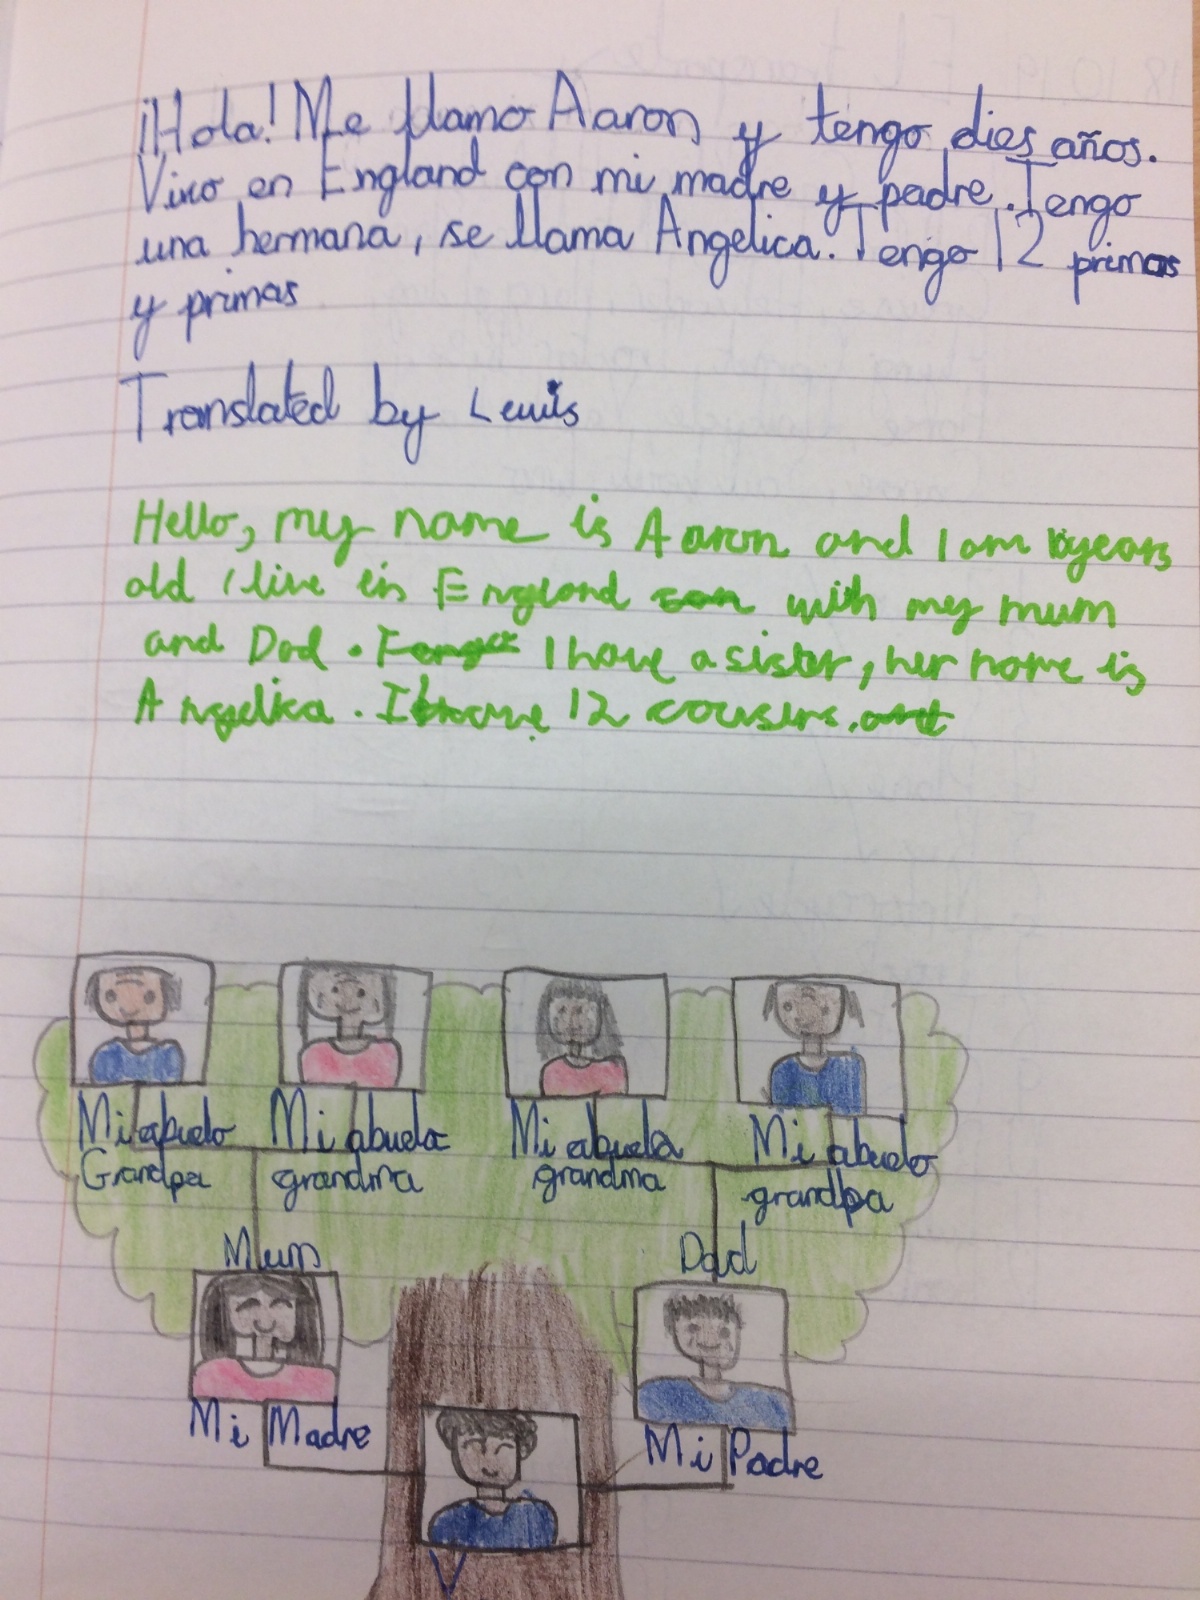 ¡Hola! Me llamo Aaron y tengo dies años.
Vivo en England con mi madre y padre. Tengo
una hermana, se llama Angelica. Tengo 12 primos
y primas
Translated by Lewis
Hello, my name is Aaron and I am 10 years
old I live in England with my mum
and Dad. I have a sister, her name is
Angelica. I have 12 cousins.
Mi abuelo Mi abuela Mi abuela Mi abuelo
Grandpa grandma grandma grandpa
Mum Dad
Mi Madre Mi Padre